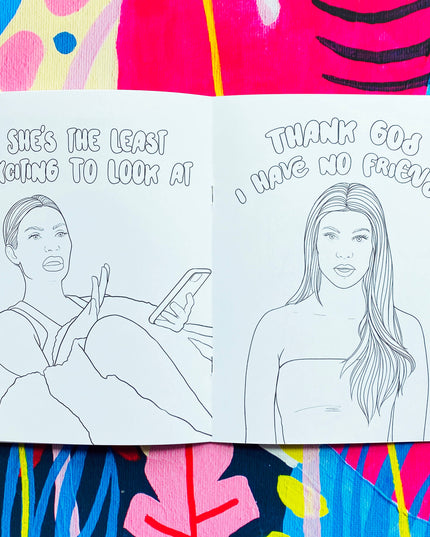 SHE'S THE LEAST
XCITING TO LOOK AT
THANK GOd
I HAVE NO FRIEND